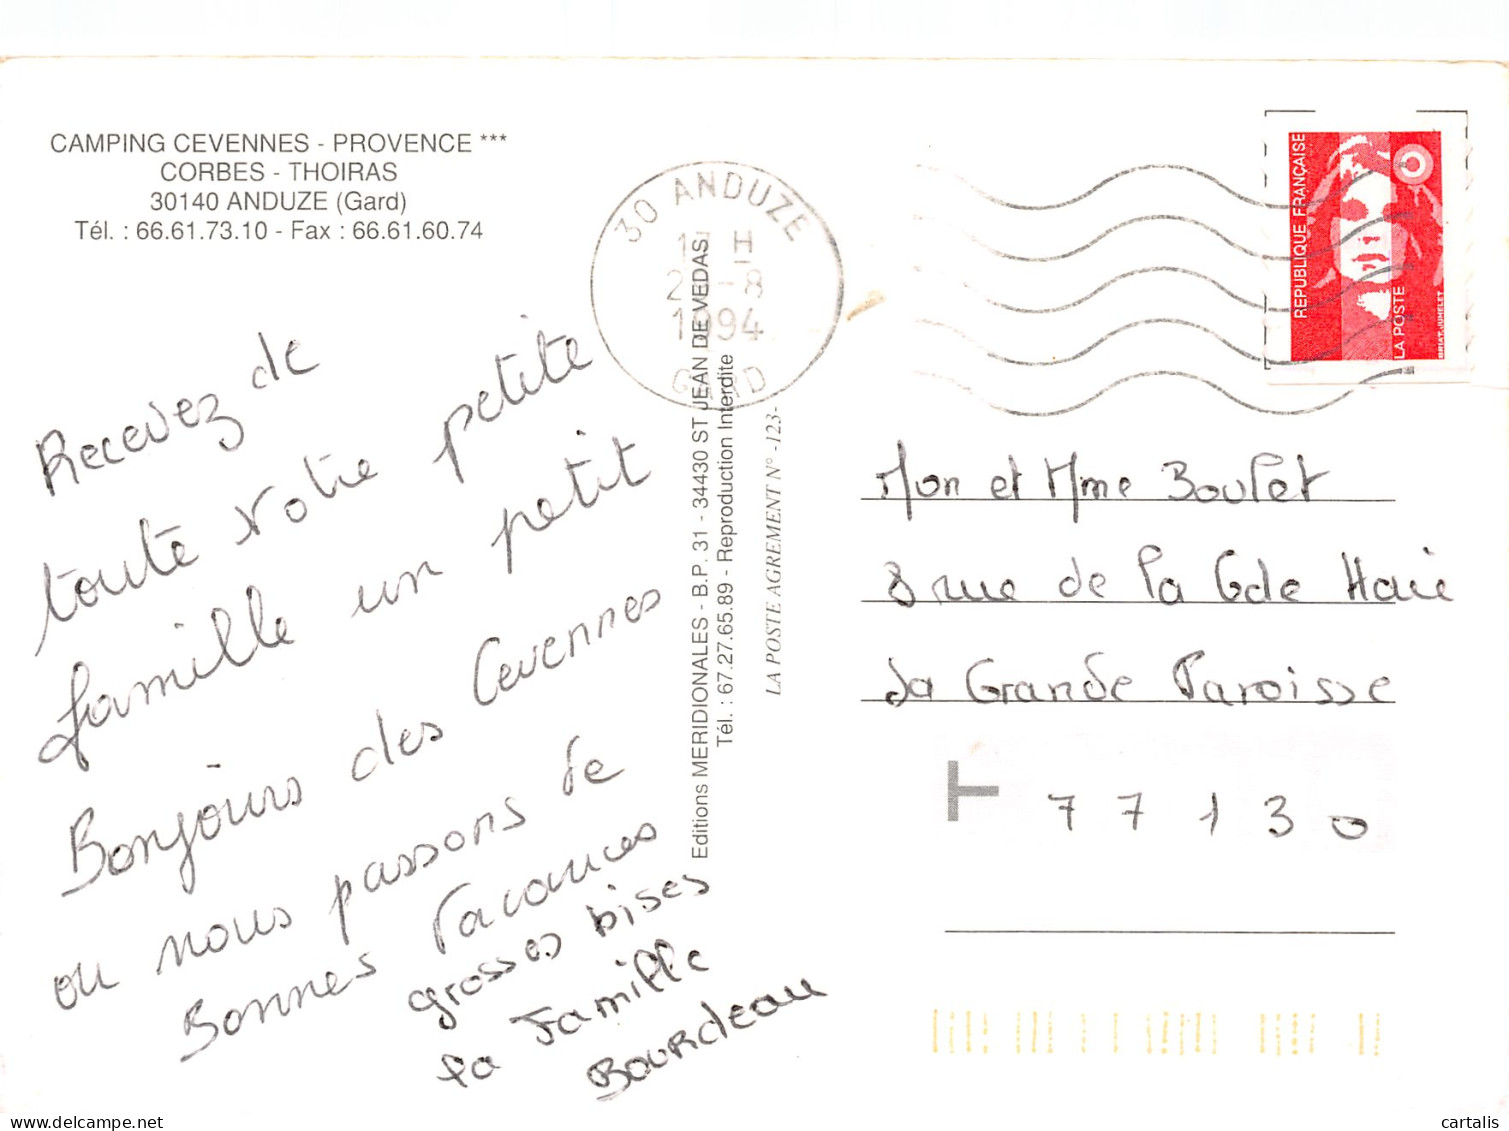 CAMPING CEVENNES - PROVENCE ***
CORBES - THOIRAS
30140 ANDUZE (Gard)
Tél. : 66.61.73.10 - Fax : 66.61.60.74
30 ANDUZE
H
-8
1994
GARD
REPUBLIQUE FRANÇAISE
LA POSTE
BRIAT-JUMELET
Recevez de
toute votre petite
famille un petit
Bonjours des Cevennes
ou nous passons de
Bonnes Vacances
grosses bises
la Famille
Bourdeau
Editions MERIDIONALES - B.P. 31 - 34430 ST JEAN DE VEDAS
Tél. : 67.27.65.89 - Reproduction Interdite
LA POSTE AGREMENT N° -123-
Mon et Mme Boulet
8 rue de la Gde Haie
La Grande Paroisse
T 77130
delcampe.net
cartalis